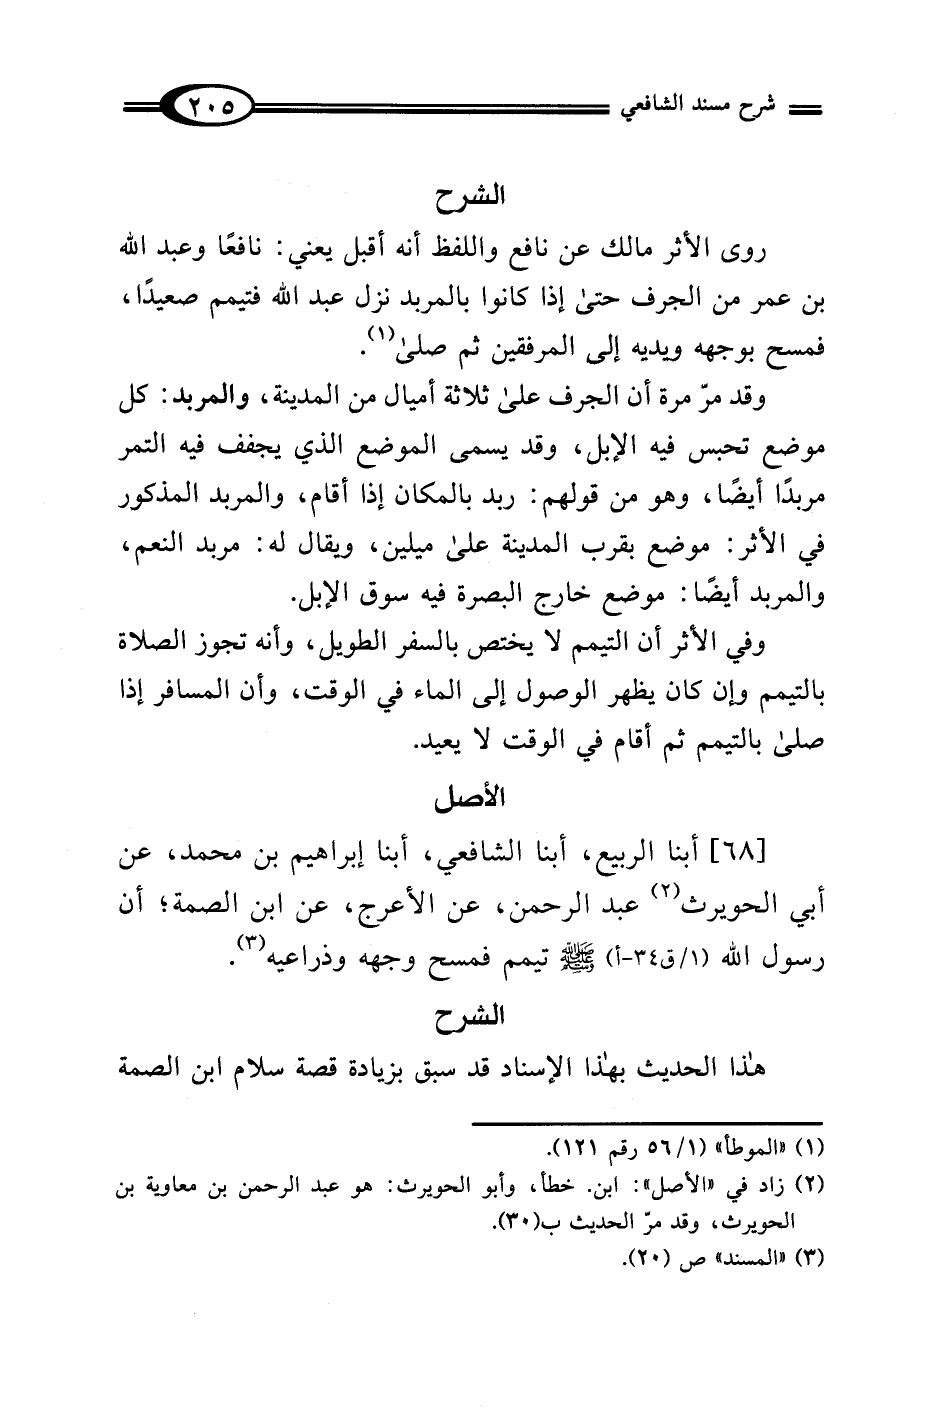 شرح مسند الشافعي ٢٠٥
الشرح
روى الأثر مالك عن نافع واللفظ أنه أقبل يعني: نافعًا وعبد الله
بن عمر من الجرف حتىٰ إذا كانوا بالمربد نزل عبد الله فتيمم صعيدًا،
فمسح بوجهه ويديه إلى المرفقين ثم صلىٰ(١).
وقد مرّ مرة أن الجرف علىٰ ثلاثة أميال من المدينة، والمربد: كل
موضع تحبس فيه الإبل، وقد يسمى الموضع الذي يجفف فيه التمر
مربدًا أيضًا، وهو من قولهم: ربد بالمكان إذا أقام، والمربد المذكور
في الأثر: موضع بقرب المدينة علىٰ ميلين، ويقال له: مربد النعم،
والمربد أيضًا: موضع خارج البصرة فيه سوق الإبل.
وفي الأثر أن التيمم لا يختص بالسفر الطويل، وأنه تجوز الصلاة
بالتيمم وإن كان يظهر الوصول إلى الماء في الوقت، وأن المسافر إذا
صلىٰ بالتيمم ثم أقام في الوقت لا يعيد.
الأصل
[٦٨] أبنا الربيع، أبنا الشافعي، أبنا إبراهيم بن محمد، عن
أبي الحويرث(٢) عبد الرحمن، عن الأعرج، عن ابن الصمة؛ أن
رسول الله (١/ق٣٤-أ) ﷺ تيمم فمسح وجهه وذراعيه(٣).
الشرح
هٰذا الحديث بهٰذا الإسناد قد سبق بزيادة قصة سلام ابن الصمة
(١) «الموطأ» (١/ ٥٦ رقم ١٢١).
(٢) زاد في «الأصل»: ابن. خطأ، وأبو الحويرث: هو عبد الرحمن بن معاوية بن
الحويرث، وقد مرّ الحديث ب(٣٠).
(٣) «المسند» ص (٢٠).